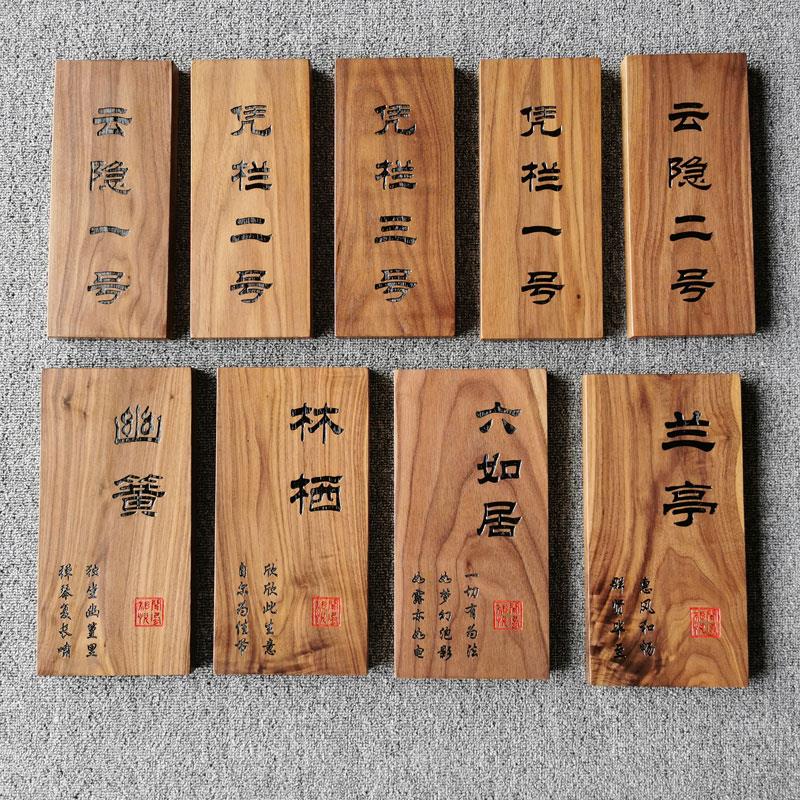 云隐一号
凭栏二号
凭栏三号
凭栏一号
云隐二号
幽簧
独坐幽篁里
弹琴复长啸
林栖
欣欣此生意
自尔为佳节
六如居
一切有为法
如梦幻泡影
如露亦如电
兰亭
惠风和畅
群贤毕至